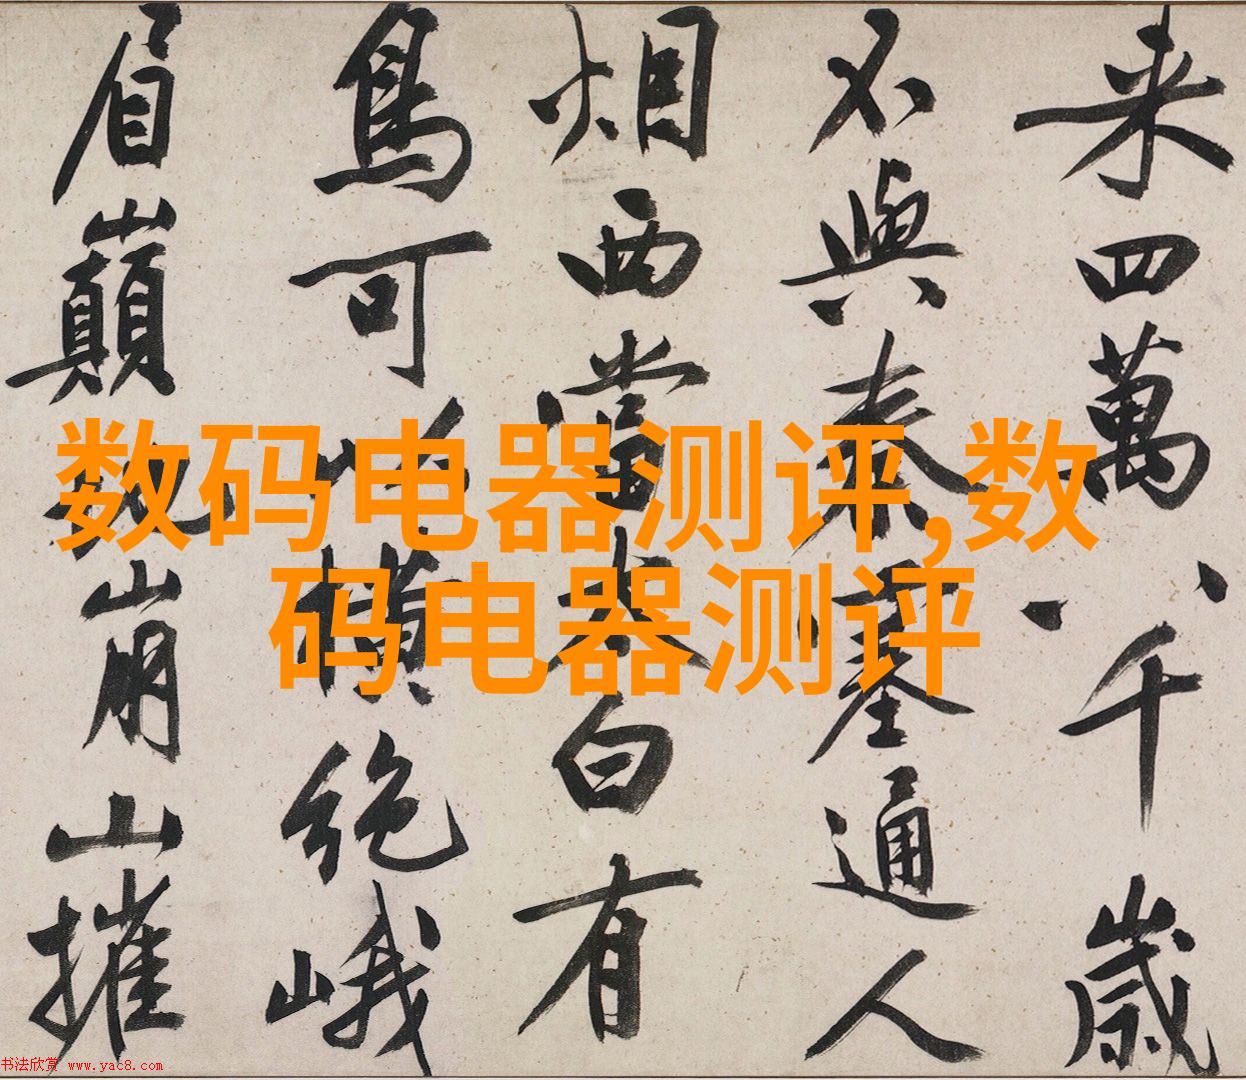 来四萬八千歲
不與秦塞通人
烟西當太白有
鳥可以横絶峨
眉巔地崩山摧
数码电器测评,数
码电器测评
书法欣赏 www.yac8.com